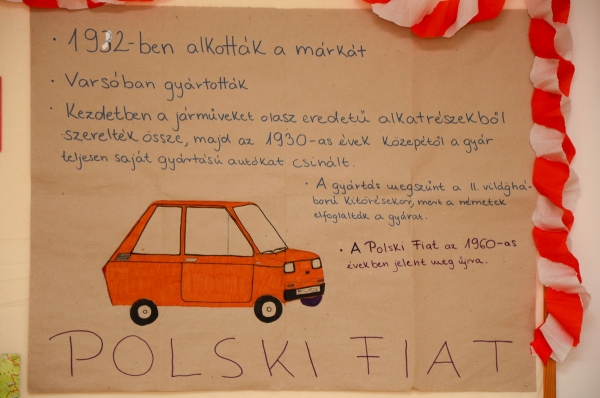 · 1932-ben alkották a márkát
· Varsóban gyártották
· Kezdetben a járműveket olasz eredetű alkatrészekből
szerelték össze, majd az 1930-as évek közepétől a gyár
teljesen saját gyártású autókat csinált.
· A gyártás megszűnt a II. világhá-
ború kitörésekor, mert a németek
elfoglalták a gyárat.
· A Polski Fiat az 1960-as
években jelent meg újra.
POLSKI FIAT